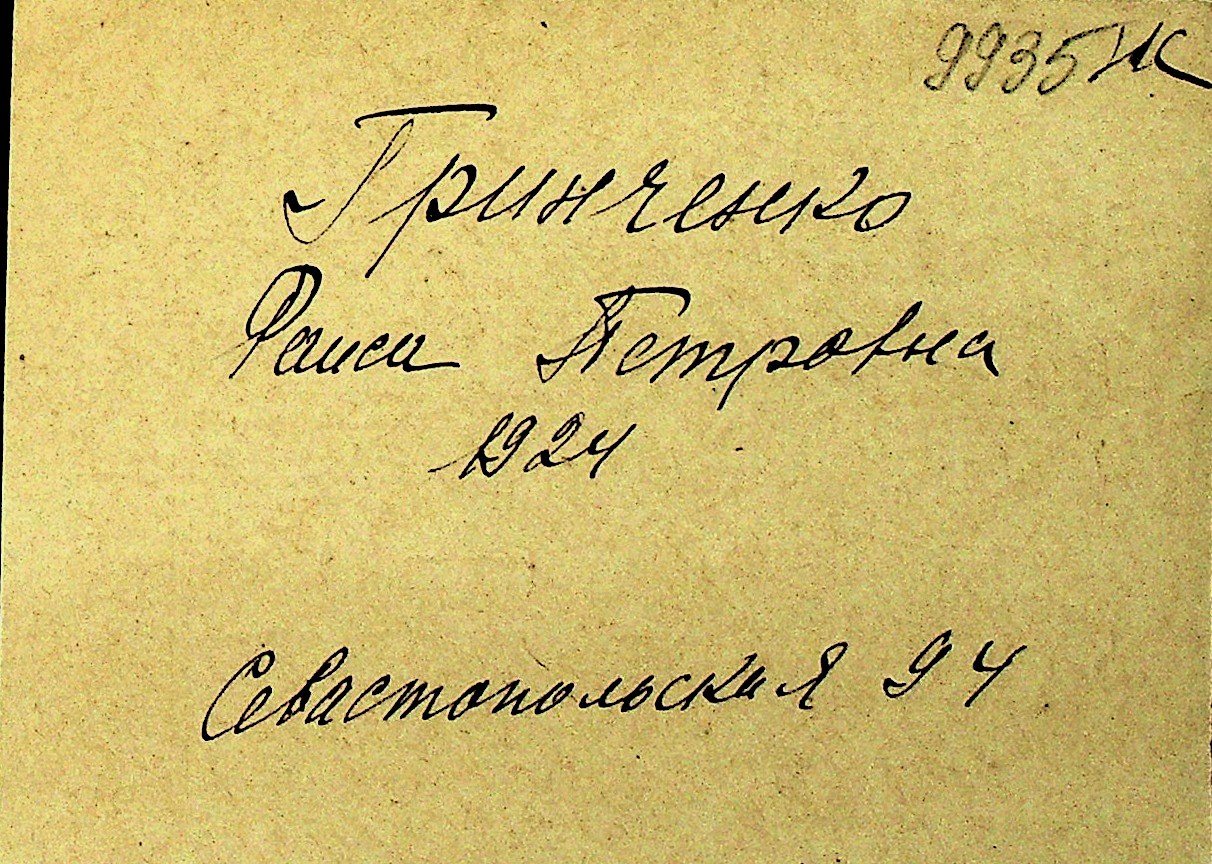 9935 НС
Гринченко
Раиса Петровна
1924
Севастопольская 94